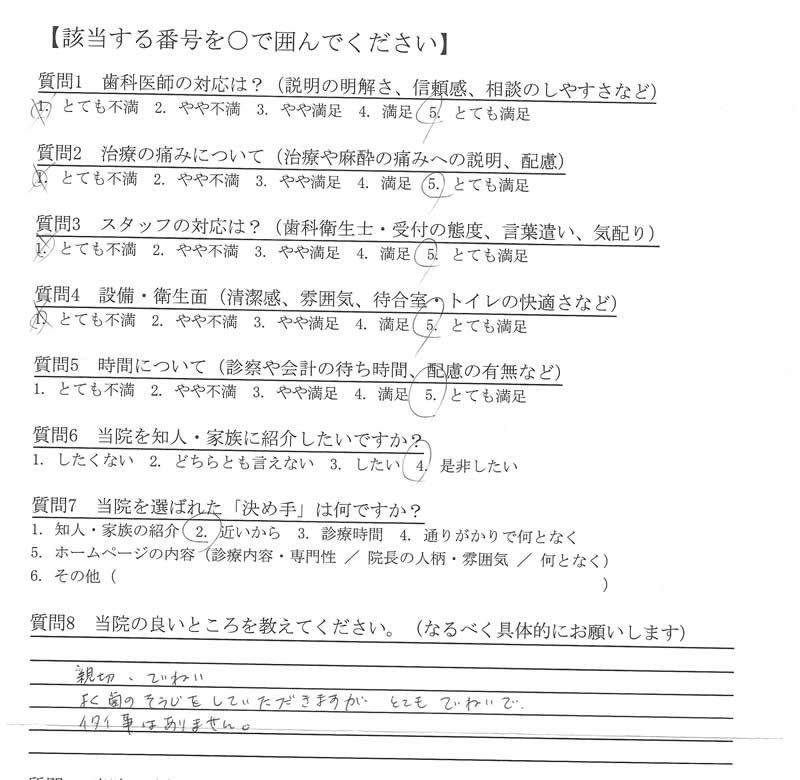 【該当する番号を○で囲んでください】
質問1　歯科医師の対応は？（説明の明解さ、信頼感、相談のしやすさなど）
1. とても不満 2. やや不満 3. やや満足 4. 満足 5. とても満足
質問2　治療の痛みについて（治療や麻酔の痛みへの説明、配慮）
1. とても不満 2. やや不満 3. やや満足 4. 満足 5. とても満足
質問3　スタッフの対応は？（歯科衛生士・受付の態度、言葉遣い、気配り）
1. とても不満 2. やや不満 3. やや満足 4. 満足 5. とても満足
質問4　設備・衛生面（清潔感、雰囲気、待合室・トイレの快適さなど）
1. とても不満 2. やや不満 3. やや満足 4. 満足 5. とても満足
質問5　時間について（診察や会計の待ち時間、配慮の有無など）
1. とても不満 2. やや不満 3. やや満足 4. 満足 5. とても満足
質問6　当院を知人・家族に紹介したいですか？
1. したくない 2. どちらとも言えない 3. したい 4. 是非したい
質問7　当院を選ばれた「決め手」は何ですか？
1. 知人・家族の紹介 2. 近いから 3. 診療時間 4. 通りがかりで何となく
5. ホームページの内容（診療内容・専門性 ／ 院長の人柄・雰囲気 ／ 何となく）
6. その他（　　　　　　　　　　）
質問8　当院の良いところを教えてください。（なるべく具体的にお願いします）
親切、ていねい
よく歯のそうじをしていただきますが とてもていねいで、
イタイ事はありません。